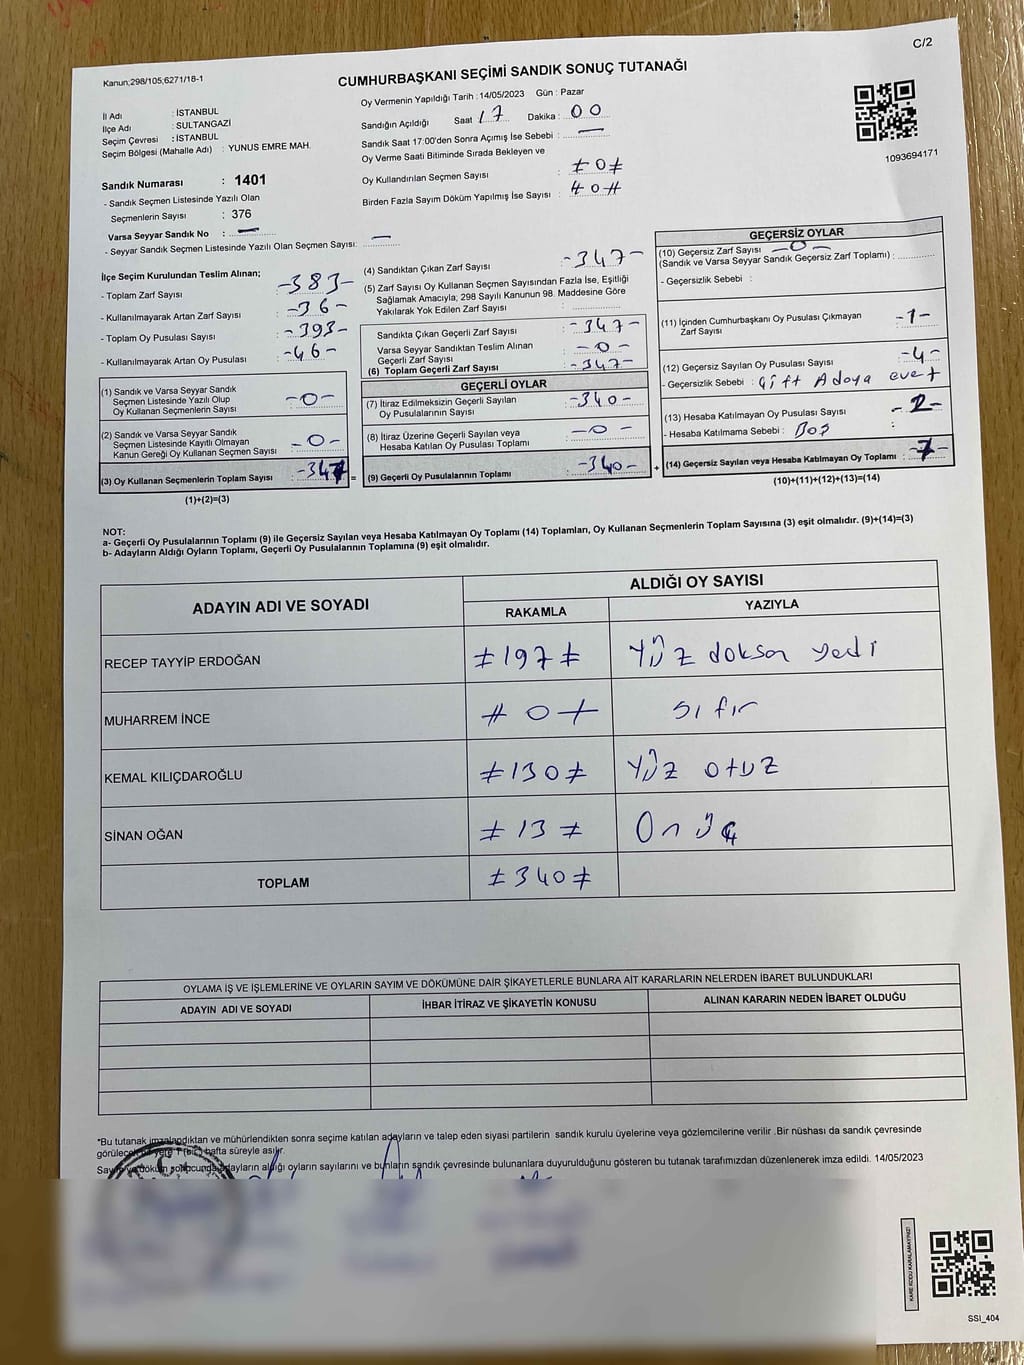 C/2
Kanun;298/105,6271/18-1
CUMHURBAŞKANI SEÇİMİ SANDIK SONUÇ TUTANAĞI
İl Adı : İSTANBUL
İlçe Adı : SULTANGAZİ
Seçim Çevresi : İSTANBUL
Seçim Bölgesi (Mahalle Adı) : YUNUS EMRE MAH.
Oy Vermenin Yapıldığı Tarih : 14/05/2023 Gün : Pazar
Sandığın Açıldığı Saat 17 Dakika : 00
Sandık Saat 17:00'den Sonra Açımış İse Sebebi : —
Oy Verme Saati Bitiminde Sırada Bekleyen ve
Oy Kullandırılan Seçmen Sayısı : ≠0≠
Birden Fazla Sayım Döküm Yapılmış İse Sayısı : #0#
1093694171
Sandık Numarası : 1401
- Sandık Seçmen Listesinde Yazılı Olan
Seçmenlerin Sayısı : 376
Varsa Seyyar Sandık No : —
- Seyyar Sandık Seçmen Listesinde Yazılı Olan Seçmen Sayısı: —
İlçe Seçim Kurulundan Teslim Alınan;
- Toplam Zarf Sayısı : -383-
- Kullanılmayarak Artan Zarf Sayısı : -36-
- Toplam Oy Pusulası Sayısı : -393-
- Kullanılmayarak Artan Oy Pusulası : -46-
(1) Sandık ve Varsa Seyyar Sandık
Seçmen Listesinde Yazılı Olup
Oy Kullanan Seçmenlerin Sayısı : -0-
(2) Sandık ve Varsa Seyyar Sandık
Seçmen Listesinde Kayıtlı Olmayan
Kanun Gereği Oy Kullanan Seçmen Sayısı : -0-
(3) Oy Kullanan Seçmenlerin Toplam Sayısı : -347-
(1)+(2)=(3)
(4) Sandıktan Çıkan Zarf Sayısı : -347-
(5) Zarf Sayısı Oy Kullanan Seçmen Sayısından Fazla İse, Eşitliği
Sağlamak Amacıyla; 298 Sayılı Kanunun 98. Maddesine Göre
Yakılarak Yok Edilen Zarf Sayısı :
Sandıkta Çıkan Geçerli Zarf Sayısı : -347-
Varsa Seyyar Sandıktan Teslim Alınan
Geçerli Zarf Sayısı : -0-
(6) Toplam Geçerli Zarf Sayısı : -347-
GEÇERLİ OYLAR
(7) İtiraz Edilmeksizin Geçerli Sayılan
Oy Pusulalarının Sayısı : -340-
(8) İtiraz Üzerine Geçerli Sayılan veya
Hesaba Katılan Oy Pusulası Toplamı : -0-
= (9) Geçerli Oy Pusulalarının Toplamı : -340-
GEÇERSİZ OYLAR
(10) Geçersiz Zarf Sayısı -0-
(Sandık ve Varsa Seyyar Sandık Geçersiz Zarf Toplamı) :
- Geçersizlik Sebebi :
(11) İçinden Cumhurbaşkanı Oy Pusulası Çıkmayan
Zarf Sayısı : -1-
(12) Geçersiz Sayılan Oy Pusulası Sayısı : -4-
- Geçersizlik Sebebi : Çift Adaya evet
(13) Hesaba Katılmayan Oy Pusulası Sayısı : -2-
- Hesaba Katılmama Sebebi : Boş
+ (14) Geçersiz Sayılan veya Hesaba Katılmayan Oy Toplamı : -7-
(10)+(11)+(12)+(13)=(14)
NOT:
a- Geçerli Oy Pusulalarının Toplamı (9) ile Geçersiz Sayılan veya Hesaba Katılmayan Oy Toplamı (14) Toplamları, Oy Kullanan Seçmenlerin Toplam Sayısına (3) eşit olmalıdır. (9)+(14)=(3)
b- Adayların Aldığı Oyların Toplamı, Geçerli Oy Pusulalarının Toplamına (9) eşit olmalıdır.
ADAYIN ADI VE SOYADI ALDIĞI OY SAYISI
RAKAMLA YAZIYLA
RECEP TAYYİP ERDOĞAN ≠197≠ Yüz doksan yedi
MUHARREM İNCE #0≠ sıfır
KEMAL KILIÇDAROĞLU ≠130≠ Yüz otuz
SİNAN OĞAN ≠13≠ On üç
TOPLAM ≠340≠
OYLAMA İŞ VE İŞLEMLERİNE VE OYLARIN SAYIM VE DÖKÜMÜNE DAİR ŞİKAYETLERLE BUNLARA AİT KARARLARIN NELERDEN İBARET BULUNDUKLARI
ADAYIN ADI VE SOYADI İHBAR İTİRAZ VE ŞİKAYETİN KONUSU ALINAN KARARIN NEDEN İBARET OLDUĞU
*Bu tutanak imzalandıktan ve mühürlendikten sonra seçime katılan adayların ve talep eden siyasi partilerin sandık kurulu üyelerine veya gözlemcilerine verilir .Bir nüshası da sandık çevresinde
görülecek bir yere 1 (bir) hafta süreyle asılır.
Sayım ve döküm sonucunda adayların aldığı oyların sayılarını ve bunların sandık çevresinde bulunanlara duyurulduğunu gösteren bu tutanak tarafımızdan düzenlenerek imza edildi. 14/05/2023
KARE KODU KARALAMAYINIZ!
SSI_404